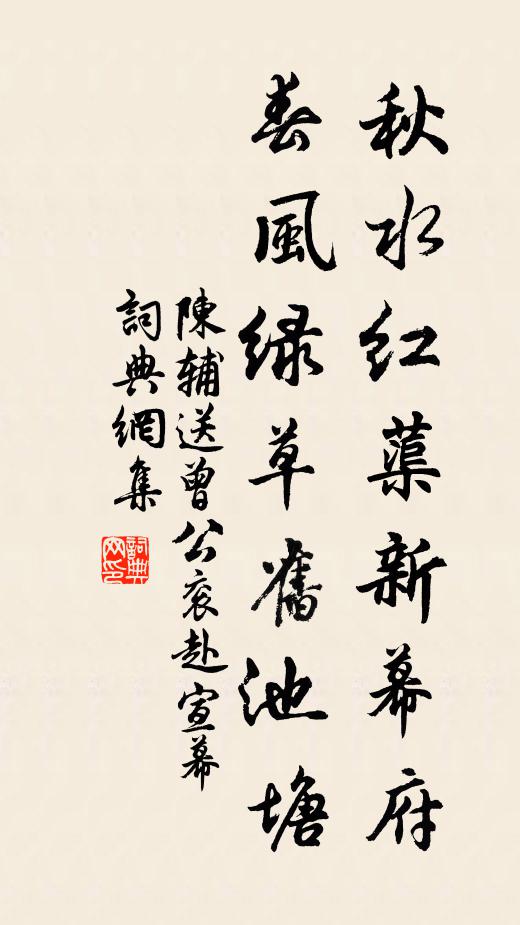 秋水红蕖新幕府
春風绿草舊池塘
陳輔送曾公衮赴宣幕
詞典網集
詞典网印